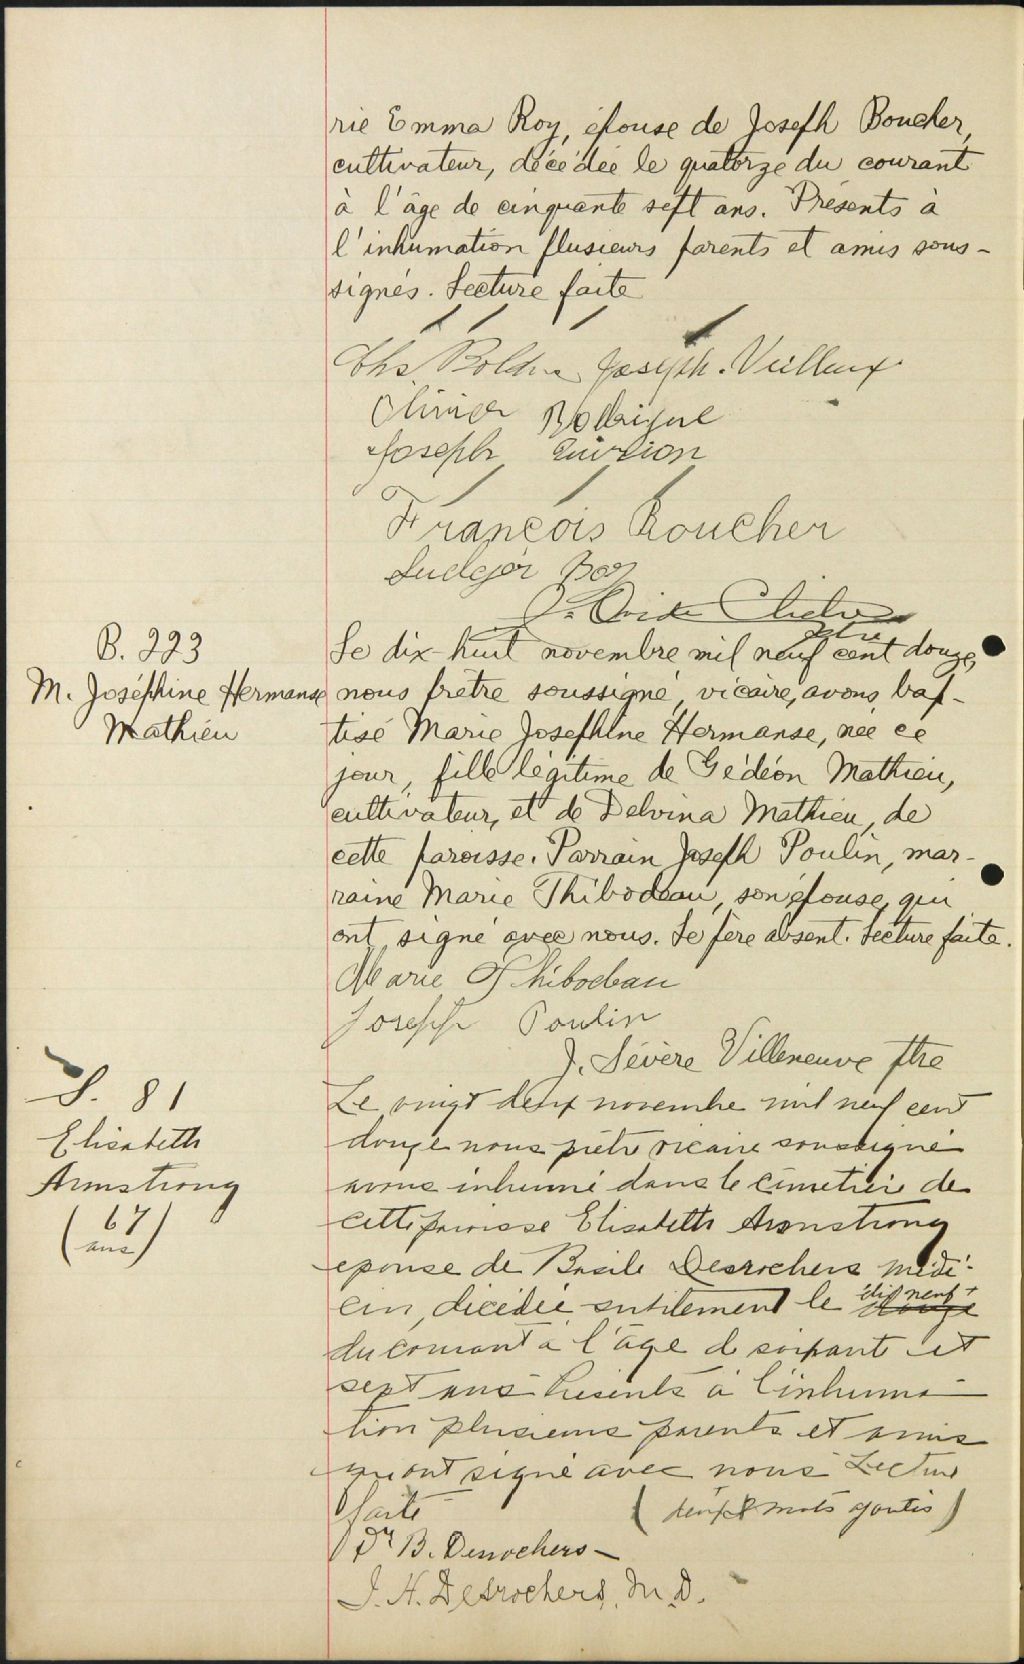 rie Emma Roy, épouse de Joseph Boucher,
cultivateur, décédée le quatorze du courant
à l'âge de cinquante sept ans. Présents à
l'inhumation plusieurs parents et amis sous-
signés. Lecture faite
Ths Bolduc Joseph. Veilleux
Olivier Rodrigue
Joseph
François Boucher
Ludger Roy
J. Ovide Cliche
ptre
B. 223
M. Joséphine Hermanse
Mathieu
Le dix-huit novembre mil neuf cent douze,
nous prêtre soussigné, vicaire, avons bap-
tisé Marie Josephine Hermanse, née ce
jour, fille légitime de Gédéon Mathieu,
cultivateur, et de Delvina Mathieu, de
cette paroisse. Parrain Joseph Poulin, mar-
raine Marie Thibodeau, son épouse, qui
ont signé avec nous. Le père absent. Lecture faite.
Marie Thibodeau
Joseph Poulin
J. Sévère Villeneuve ptre
S. 81
Elisabeth
Armstrong
(67
ans)
Le vingt deux novembre mil neuf cent
douze nous prêtre vicaire soussigné
avons inhumé dans le cimetière de
cette paroisse Elisabeth Armstrong
epouse de Basile Desrochers méde-
cin, décédée subitement le dix neuf +
du courant à l'âge de soixante et
sept ans Présents à l'inhuma-
tion plusieurs parents et amis
qui ont signé avec nous Lecture
faite (deux mots ajoutés)
Dr B. Desrochers -
J. H. Desrochers, M.D.